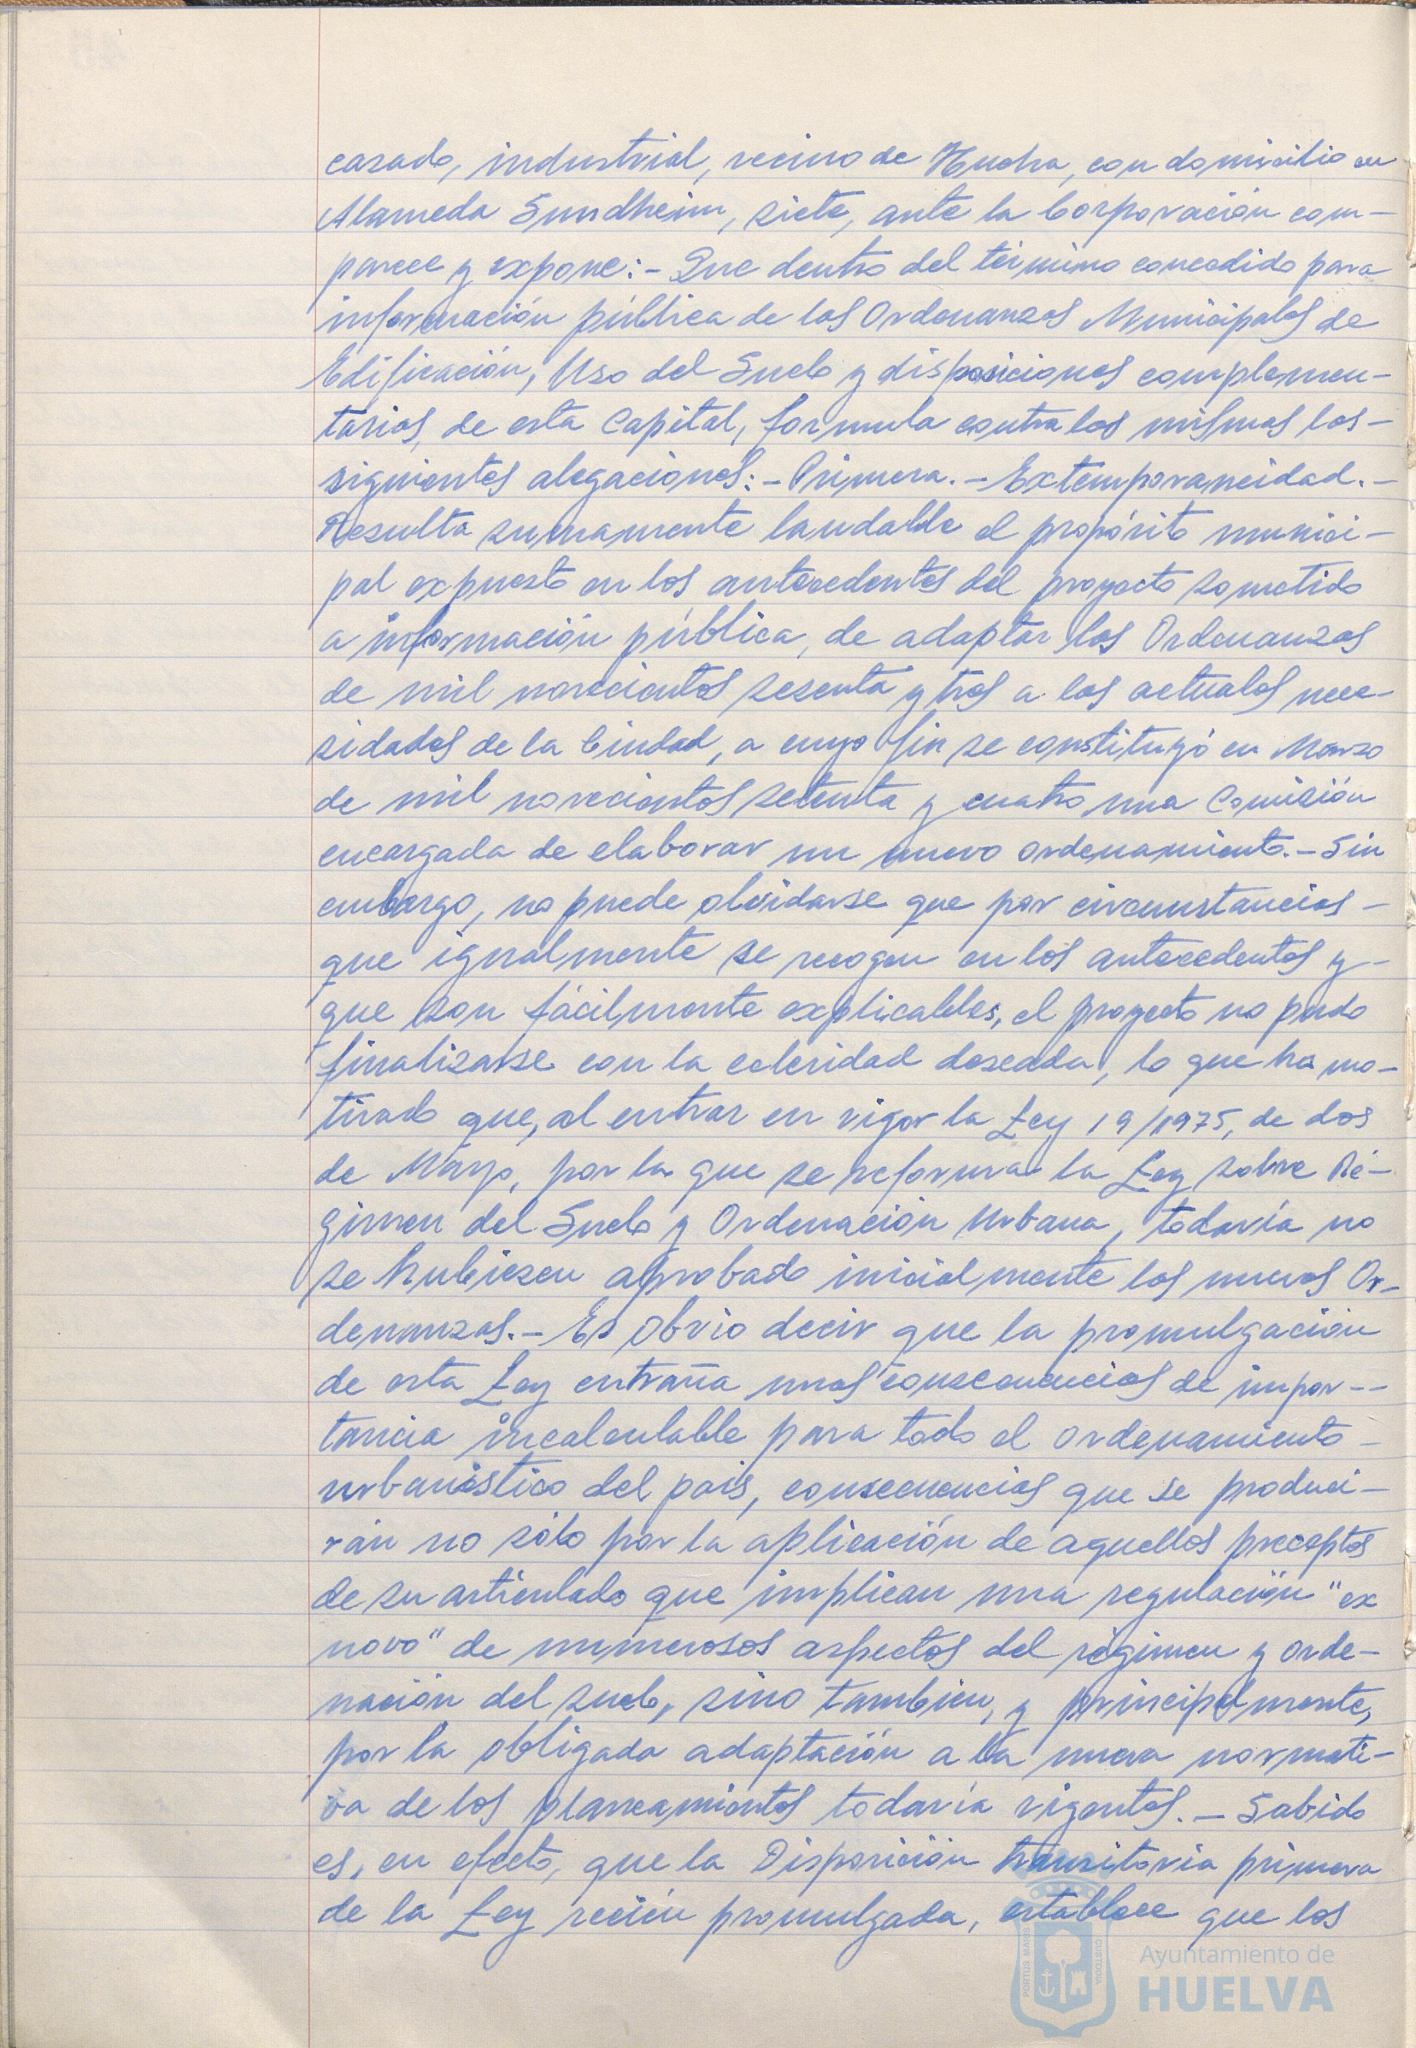 casado, industrial, vecino de Huelva, con domicilio en
Alameda Sundheim, siete, ante la Corporación com-
parece y expone:- Que dentro del término concedido para
información pública de las Ordenanzas Municipales de
Edificación, Uso del Suelo y disposiciones complemen-
tarias, de esta Capital, formula contra las mismas las-
siguientes alegaciones:- Primera.- Extemporaneidad.-
Resulta sumamente laudable el propósito munici-
pal expuesto en los antecedentes del proyecto sometido
a información pública, de adaptar las Ordenanzas
de mil novecientos sesenta y tres a las actuales nece-
sidades de la Ciudad, a cuyo fin se constituyó en Marzo
de mil novecientos setenta y cuatro una Comisión
encargada de elaborar un nuevo ordenamiento.- Sin
embargo, no puede olvidarse que por circunstancias-
que igualmente se recogen en los antecedentes y-
que son fácilmente explicables, el proyecto no pudo
finalizarse con la celeridad deseada, lo que ha mo-
tivado que, al entrar en vigor la Ley 19/1975, de dos
de Mayo, por la que se reforma la Ley sobre Ré-
gimen del Suelo y Ordenación Urbana, todavía no
se hubiesen aprobado inicialmente las nuevas Or-
denanzas.- Es obvio decir que la promulgación
de esta Ley entraña unas consecuencias de impor--
tancia incalculable para todo el ordenamiento-
urbanístico del pais, consecuencias que se produci-
rán no sólo por la aplicación de aquellos preceptos
de su articulado que implican una regulación "ex
novo" de numerosos aspectos del régimen y orde-
nación del suelo, sino tambien, y principalmente,
por la obligada adaptación a la nueva normati-
va de los planeamientos todavía vigentes.- Sabido
es, en efecto, que la Disposición transitoria primera
de la Ley recién promulgada, establece que los
PORTUS MARIS
CUSTODIA
Ayuntamiento de
HUELVA